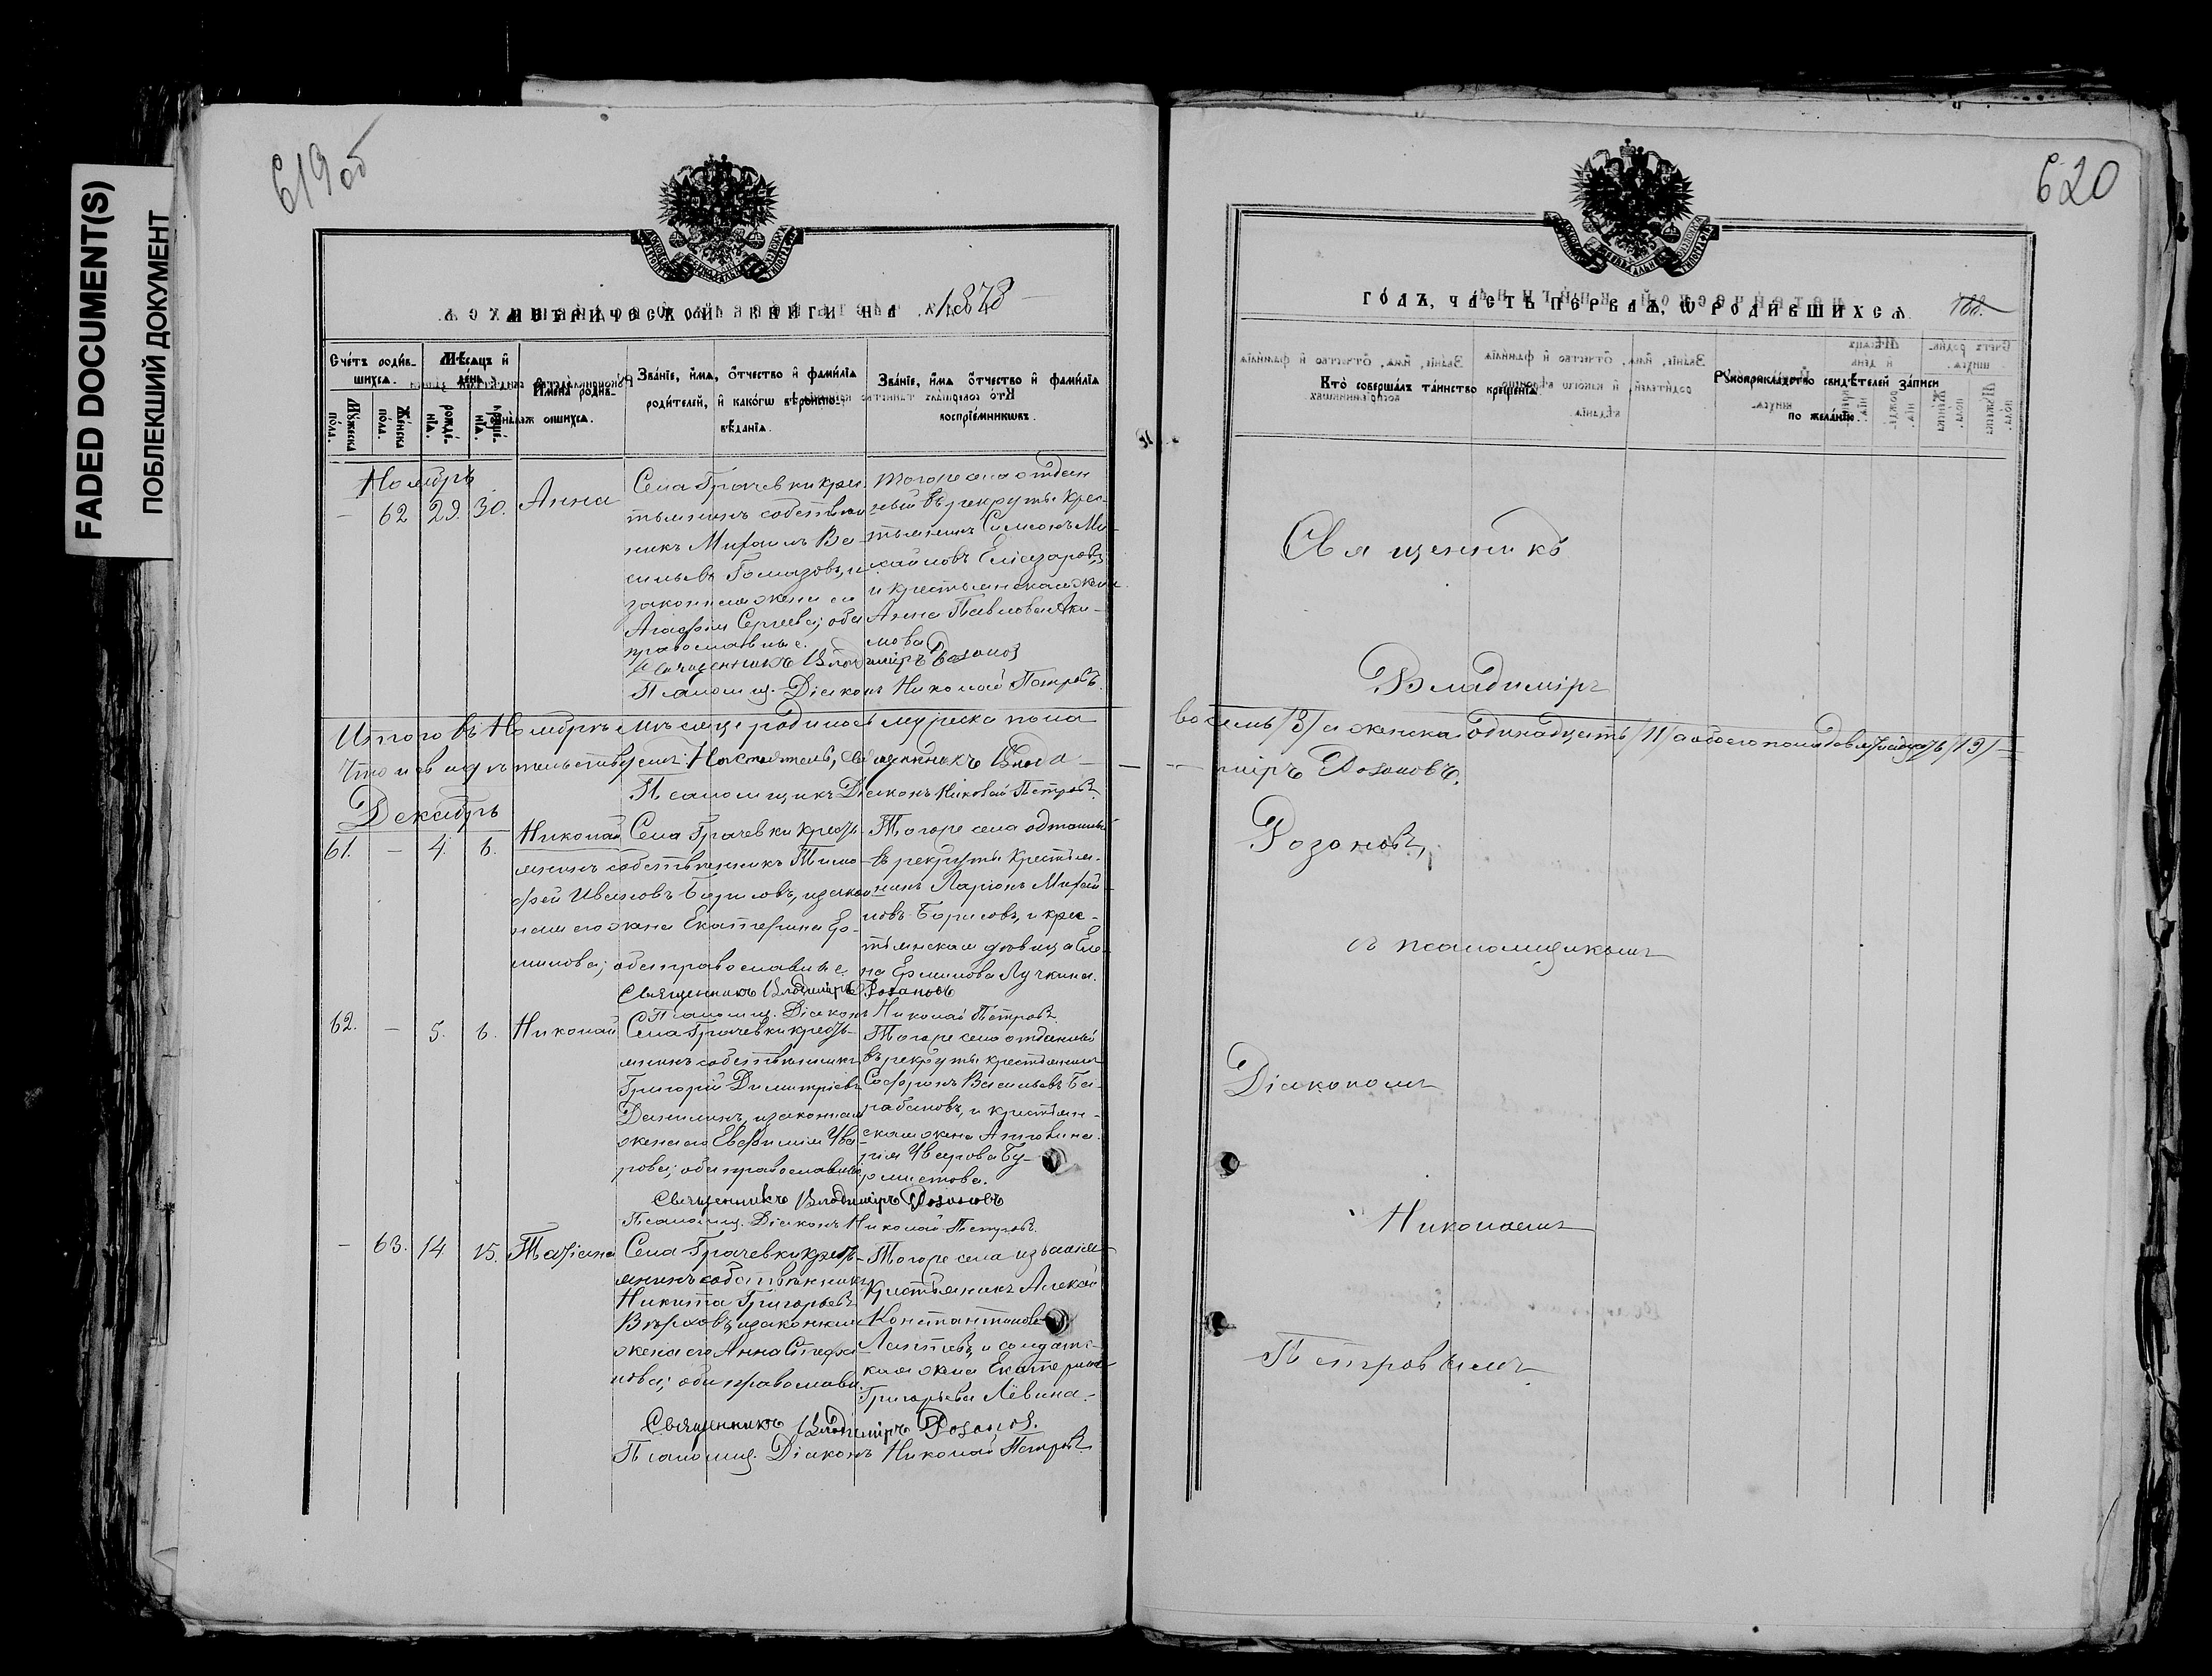 FADED DOCUMENT(S)
ПОБЛЕКШИЙ ДОКУМЕНТ
619 об
МЕТРИЧЕСКОЙ КНИГИ НА 1878
Счетъ родив-
шихся.
Мѣсяцъ и
день.
Мужеска
пола.
Женска
пола.
рожде-
нія.
креще-
нія.
Имена родив-
шихся.
Званіе, имя, отчество и фамилія
родителей, и какогѡ вѣроиспо-
вѣданія.
Званіе, имя отчество и фамилія
воспріемникѡвъ.
Ноябрь
— 62 29. 30. Анна
Села Грачевки крес-
тьянинъ собствен
никъ Михаилъ Ва-
сильевъ Гомазовъ, и
законная жена его
Агафія Сергеева; оба
православные.
того же села отдан
ный въ рекруты крес-
тьянинъ Симеонъ Ми-
хайловъ Елiазаровъ,
и крестьянская жена
Анна Павлова Аки-
мова
Священникъ Владиміръ Розановъ
Псаломщ. Діаконъ Николай Петровъ.
Итого въ Ноябрѣ мѣсяце родилось мужеска пола
Что и свидѣтельствуемъ: Настоятель, Священникъ Влади-
Псаломщикъ Діаконъ Николай Петровъ.
Декабрь
61. — 4. 6. Николай
Села Грачевки кресть-
янинъ собственникъ Тимо-
фей Ивановъ Борисовъ, и закон
ная его жена Екатерина Ер-
милова; оба православные.
Того же села отданный
въ рекруты крестья-
нинъ Ларіонъ Михай-
ловъ Борисовъ, и крес-
тьянская дѣвица Еле-
на Ермилова Лучкина.
Священникъ Владиміръ Розановъ
Псаломщ. Діаконъ Николай Петровъ.
62. — 5. 6. Николай
Села Грачевки кресть-
янинъ собственникъ
Григорій Димитріевъ
Данилинъ, и законная
жена его Евфимія Ува-
рова; оба православные
Того же села отданный
въ рекруты крестьянинъ
Софронъ Васильевъ Ба-
рабановъ, и крестьян-
ская жена Аполлина-
рія Уварова Бу-
рмистова.
Священникъ Владиміръ Розановъ
Псаломщ. Діаконъ Николай Петровъ.
— 63. 14 15. Татіана
Села Грачевки кресть-
янинъ собственникъ
Никита Григорьевъ
Вѣрховъ, и законная
жена его Анна Стефа-
нова; оба православн.
Того же села
крестьянинъ Алексѣй
Константиновъ
Лаптевъ, и солдатс-
кая жена Екатерина
Григорьева Лёвина.
Священникъ Владиміръ Розановъ.
Псаломщ. Діаконъ Николай Петровъ
620
ГОДЪ, ЧАСТЬ ПЕРВАЯ, Ѡ РОДИВШИХСЯ
188.
Кто совершалъ таинство крещенія.
Рукоприкладство свидѣтелей записи
по желанію.
Священникъ
Владиміръ
восемь /8/ а женска одинадцать /11/ а обоего пола девятнадцать /19/
міръ Розановъ.
Розановъ,
съ псаломщикомъ
Діакономъ
Николаемъ
Петровымъ.